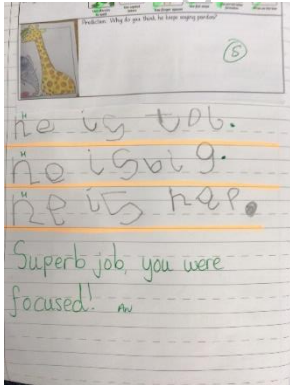 Prediction: Why do you think he keeps saying pardon?
5
He is tol.
He is big.
He is hap.
Superb job, you were
focused! AW